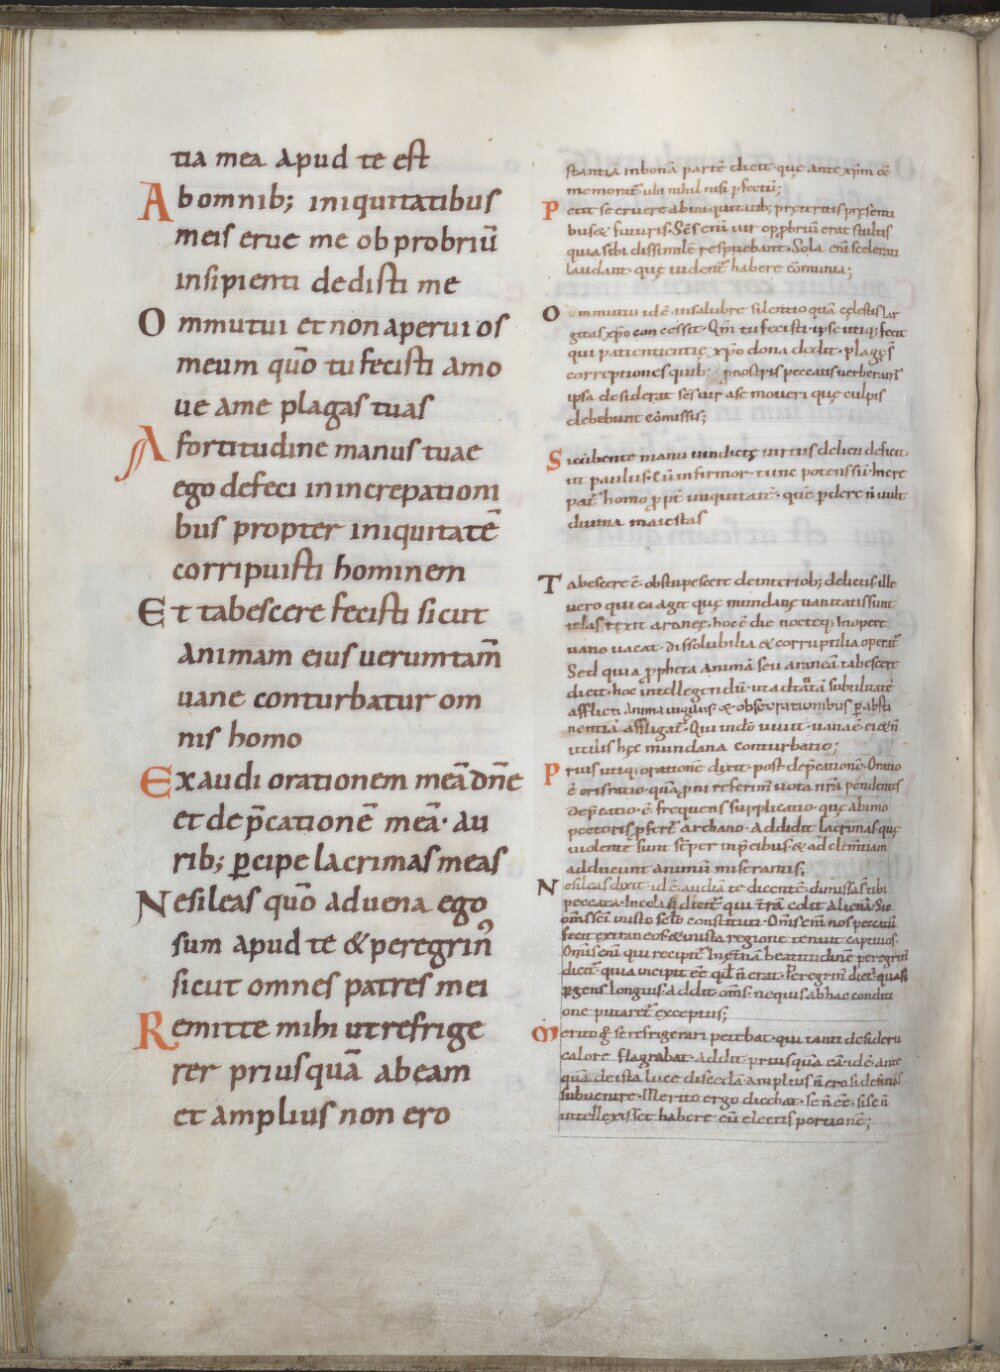 tia mea apud te est
Ab omnib; iniquitatibus
meis erue me obprobriū
insipienti dedisti me
Ommutui et non aperui os
meum quō tu fecisti amo
ue a me plagas tuas
A fortitudine manus tuae
ego defeci in increpationi
bus propter iniquitatē
corripuisti hominem
Et tabescere fecisti sicut
animam eius uerumtam̄
uane conturbatur om
nis homo
Exaudi orationem meā dn̄e
et dep̄cationē meā· au
rib; ꝑcipe lacrimas meas
Ne sileas quō aduena ego
sum apud te & peregrin᾽
sicut omnes patres mei
Remitte mihi ut refrige
rer priusquā abeam
et amplius non ero
stantia in bonā partē dicit· quę ante xp̄m eē
memorat̄· ubi nihil nisi ꝑfectū;
Petit se eruere ab iniquitatib; pręteritis pręsenti
bus & futuris· Sc̄s enī uir opprobriū erat stultis
quia sibi dissimilē respuebant· Sola enī scelerati
laudant· quę uident̄ habere cōmunia;
Ommutui idē in salubre silentio quā cęlestis lar
gitas xp̄o concessit· Qm̄ tu fecisti· ipse utiq; fecit
qui patientientię xp̄o dona dedit· plagę s̄
correptiones quib; ꝓ nostris peccatis uerberant̄
ipsa desiderat sc̄s uir a se moueri quę culpis
debebunt cōmissis;
Sic ūbente manu uindictę uirtus delicti deficit·
ut paulus· Cū infirmor· tunc potens sū· Incre
pat̄ homo ꝓpt̄ iniquitatē· quē ꝑdere n̄ uult
diuina maiestas
Tabescere ē· obstupescere de interiob; delictis· ille
uero qui ea agit quę mundanę uanitatis sunt
telas texit araneę· hoc ē die nocteq; In opere
uano uacat· dissolubilia & corruptilia operat̄
Sed quia ꝓpheta animā seu araneā tabescere
dicit· hoc intellegendū· ut ad tātā subtilitatē
afflicti anima uigiliis· & obseruationibus ꝑ absti
nentiā affligat̄· Qui in dō uiuit· uana ē ei & n̄
utilis hęc mundana conturbatio;
Prius utiq; orationē dixit· post dep̄cationē· Oratio
ē oris ratio· quā ꝓni referim᾽ uota nr̄i pendentes
Dep̄catio· ē frequens supplicatio· quę ab imo
pectoris ꝓfert̄ archano· Addidit lacrimas quę
uiolentę sunt sēper in p̄cibus· & ad clem̄tiam
adducunt animū miserantis;
Ne sileas dixit· id ē· audiā te dicentē· dimissa s̄ tibi
peccata· Incola s̄ dicit̄ qui t̄rā colit alienā· Sic
om̄s sc̄i in isto sc̄lo constituti· Om̄s enī nos peccatū
fecit extraneos· & in ista regione tenuit captiuos·
Om̄s enī qui recipit̄ In et̄nā beatitudinē peregrin᾽
dicit̄· quia incipit eē qd̄ n̄ erat· Peregrin᾽ dicit̄ quasi
ꝑgens longius· Addit· om̄s· ne quis ab hac conditi
one putaret̄ exceptus;
Merito g̊ se refrigerari petebat· qui tanti desiderii
calore flagrabat· addit· priusquā eā· id ē· ante
quā de ista luce discedā· amplius n̄ ero si definas
subuenire· Merito ergo dicebat· se n̄ eē· si se n̄
intellexisset habere cū electis portionē;